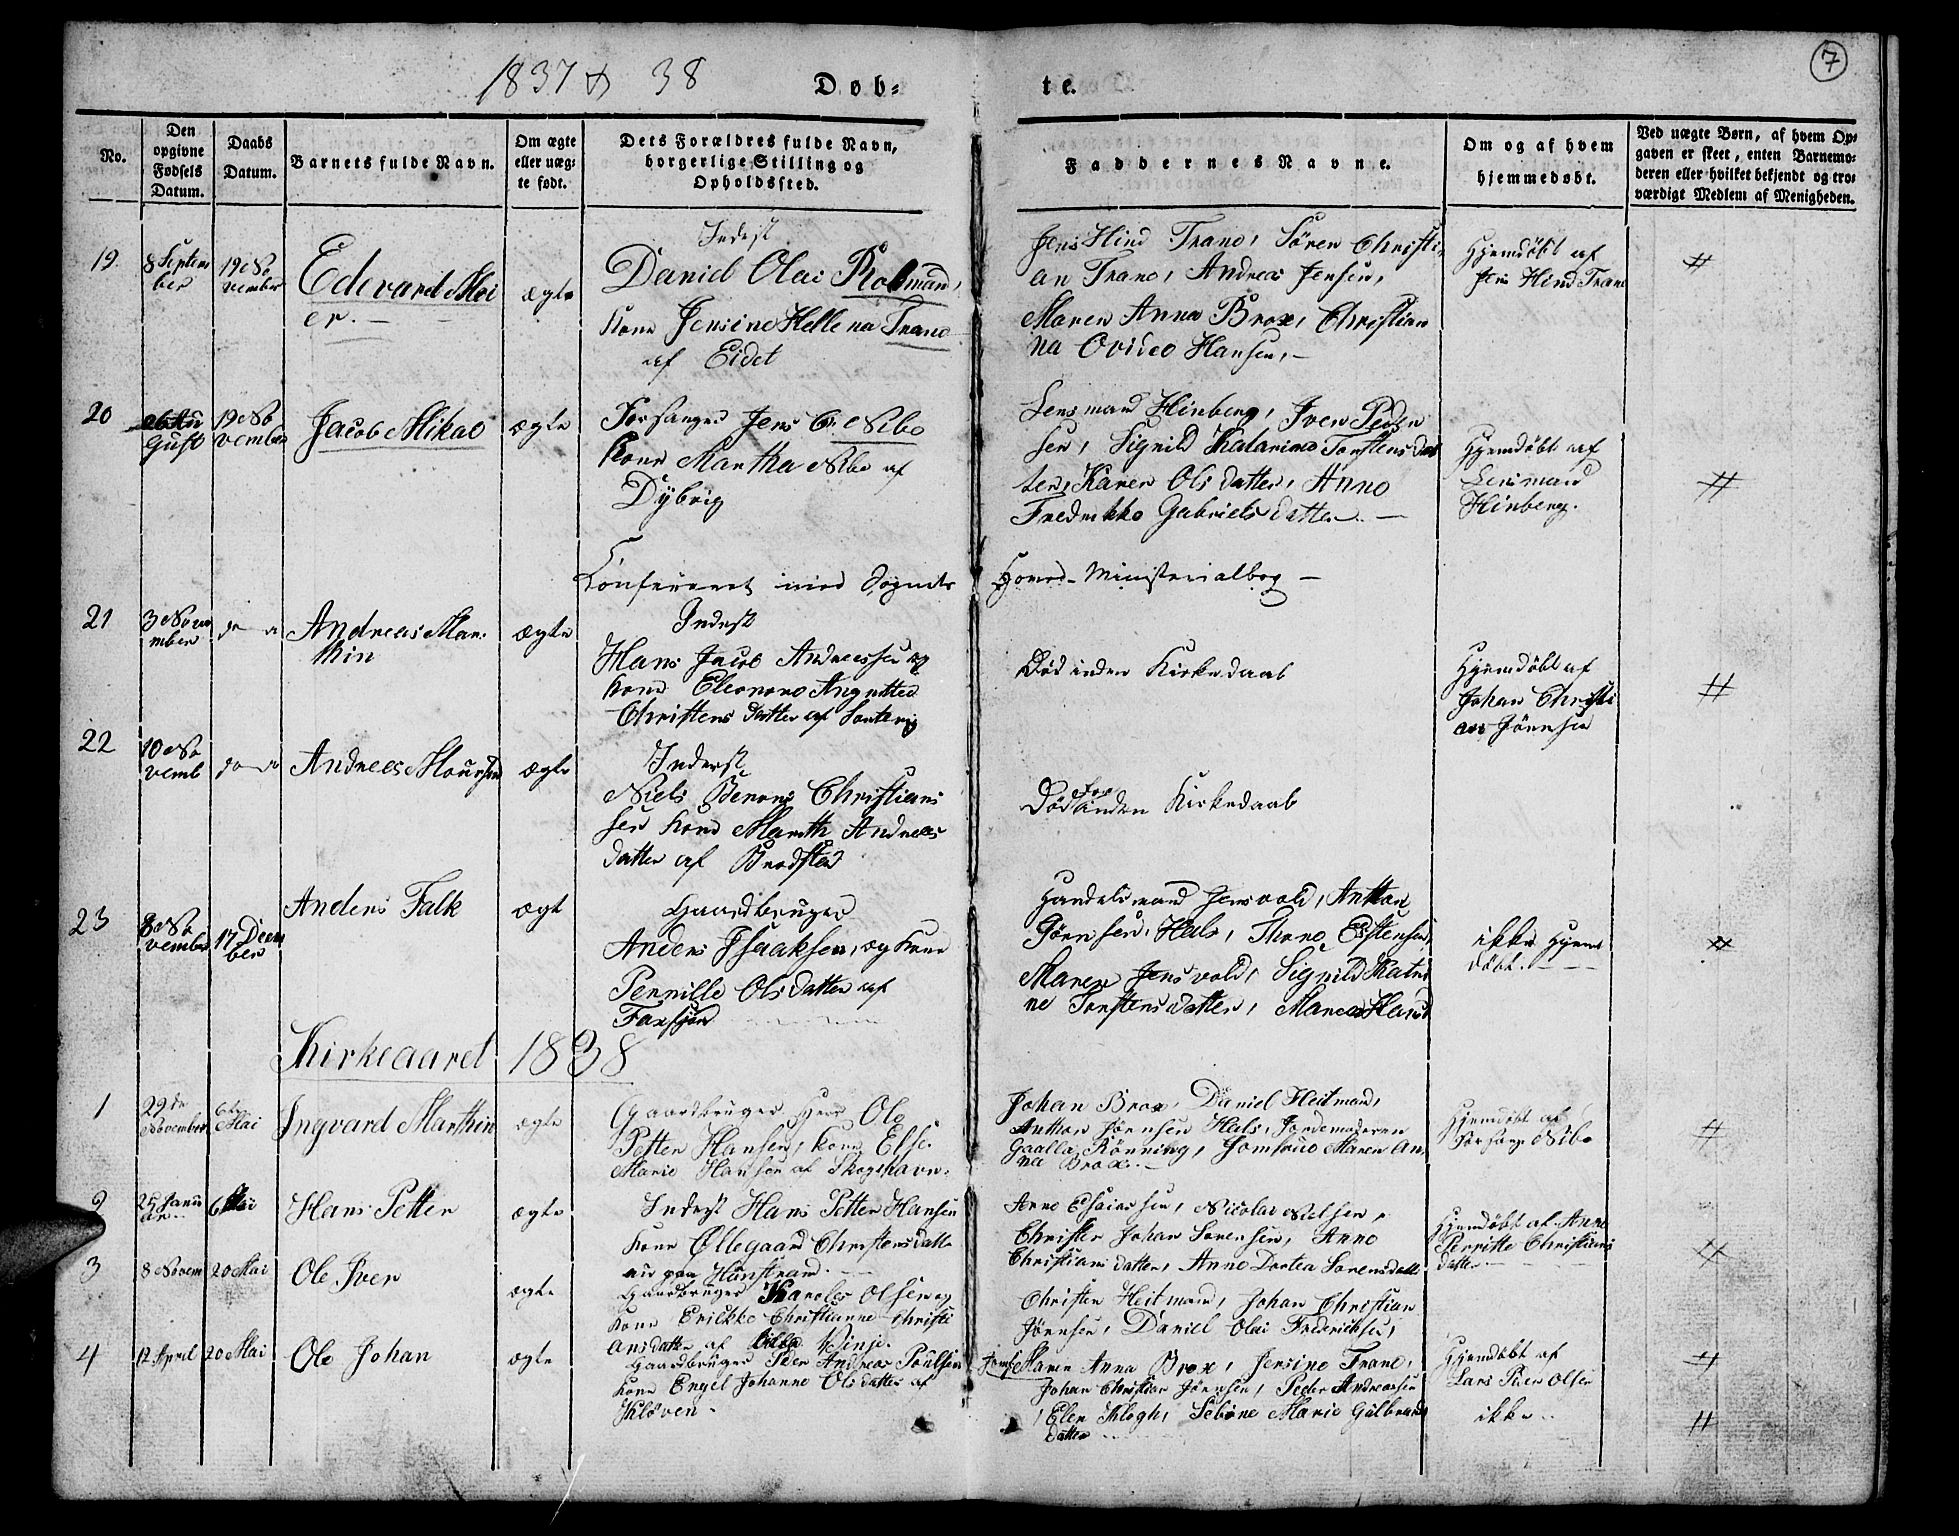 7
1837 & 38
Døb=
te.
No.
Den opgivne Fødsels Datum.
Daabs Datum.
Barnets fulde Navn.
Om ægte eller uæg-te født.
Dets Forældres fulde Navn, borgerlige Stilling og Opholdssted.
Faddernes Navne.
Om og af hvem hjemmedøbt.
Ved uægte Børn, af hvem Op-gaven er skeet, enten Barnemo-deren eller hvilket bekjendt og tro-værdigt Medlem af Menigheden.
19.
8 Septem
ber
19 No
vember
Edevard Mei
er.
ægte
Inderst
Daniel Olai Rodmand,
Kone Jensine Hellena Trane
af Eidet
Jens Hind Trane, Sören Christi
an Trane, Andreas Jensen,
Maren Anna Brox, Christian
na Ovidea Hansen, –
Hjemdöbt af
Jens Hind Trane
20
gust
19 No
vember
Jacob Mikal
ægte
Forsanger Jens C. Nibe
Kone Martha Nibe af
Dybvig
Lensmand Hinberg, Iver Peder
sen, Sigrild Katarine Torstens dat
ter, Karen Olsdatter, Anne
Fredrikke Gabrielsdatter. –
Hjemdöbt af
Lensmand
Hinberg.
Confereret med Sognets
Hoved-Ministerialbog –
21
3 Novem
mber
do
Andreas Mar-
thin
ægte
Inderst
Hans Jacob Andreassen og
Kone Eleonore Angnethe
Christens datter af
Död inden Kirkedaab
Hjemdöbt af
Johan Christi
an Jörnsen
22
10 No
vemb
do
Andreas
ægte
Inderst
Niels Benoni Christians
sen Kone Mareth Andreas
datter af
Död for inden Kirkedaab
23
8 No
vember
17 Decem
ber
Anders Falk
ægt
Gaardbruger
Anders Isaaksen, og Kone
Pernille Olsdatter af
Faxfjord
Handelsmand Jensvold, Anthon
Jörnsen Hals, Thune Eistensen,
Maren Jensvold, Sigrild Katri
ne Torstensdatter,
ikke Hjem
döbt.
Kirkeaaret 1838
1
29de
November
6te
Mai
Ingvard Marthin
ægte
Gaardbruger Herr Ole
Petter Hansen, Kone Else
Marie Hansen af Skogshavn.
Johan Brox, Daniel Heitmand,
Anthon Jörnsen Hals, Jordemoderen
Gaalla Rönning, Jomfrue Maren An
na Brox.
Hjemdöbt af
Forsanger Nibe
2
25 Janu
ar
6 Mai
Hans Petter
ægte
Inderst Hans Petter Hansen
Kone Øllegaard Christensdatte
Arne Esaiassen, Nicolai Nielsen,
Christen Johan Sörensen, Anne
Christians datter, Anne Dortea Sörensdatt
Hjemdöbt af Anne
Perritte Christians
datter
3
8 Novem
20 Mai
Ole Iver
ægte
Gaardbruger Karoles Olsen og
Kone Erikke Christianne Christi
ansdatter af Lille Vinje.
Christen Heitmand, Johan Christian
Jörnsen, Daniel Olai Fredriksen,
Jomf. Maren Anna Brox, Jensine Trane.
Hjemdöbt af
Lars Peder Olsen
4
12 April
20 Mai
Ole Johan
ægte
Gaardbruger Peder Andreas Poulsen
Kone Engel Johanne Olsdatter af
Klöven.
Johan Christian Jörnsen, Peder Andreassen
, Elen Klogh, Sebine Marie Gulbrands
datter
ikke